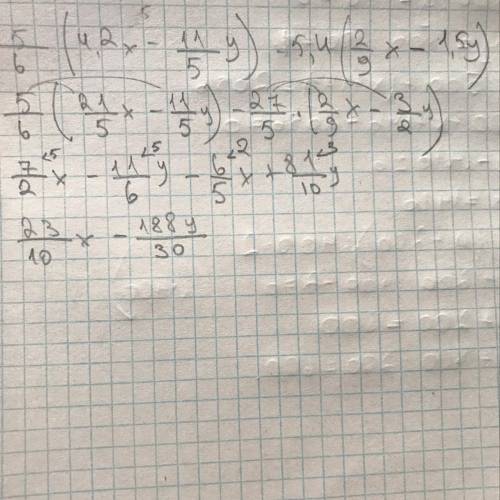 5/6 (4,2x - 11/5 y) - 5,4 (2/9 x - 1,5y)
5/6 (21/5 x - 11/5 y) - 27/5 · (2/9 x - 3/2 y)
7/2 x - 11/6 y - 6/5 x + 81/10 y
23/10 x - 188y/30